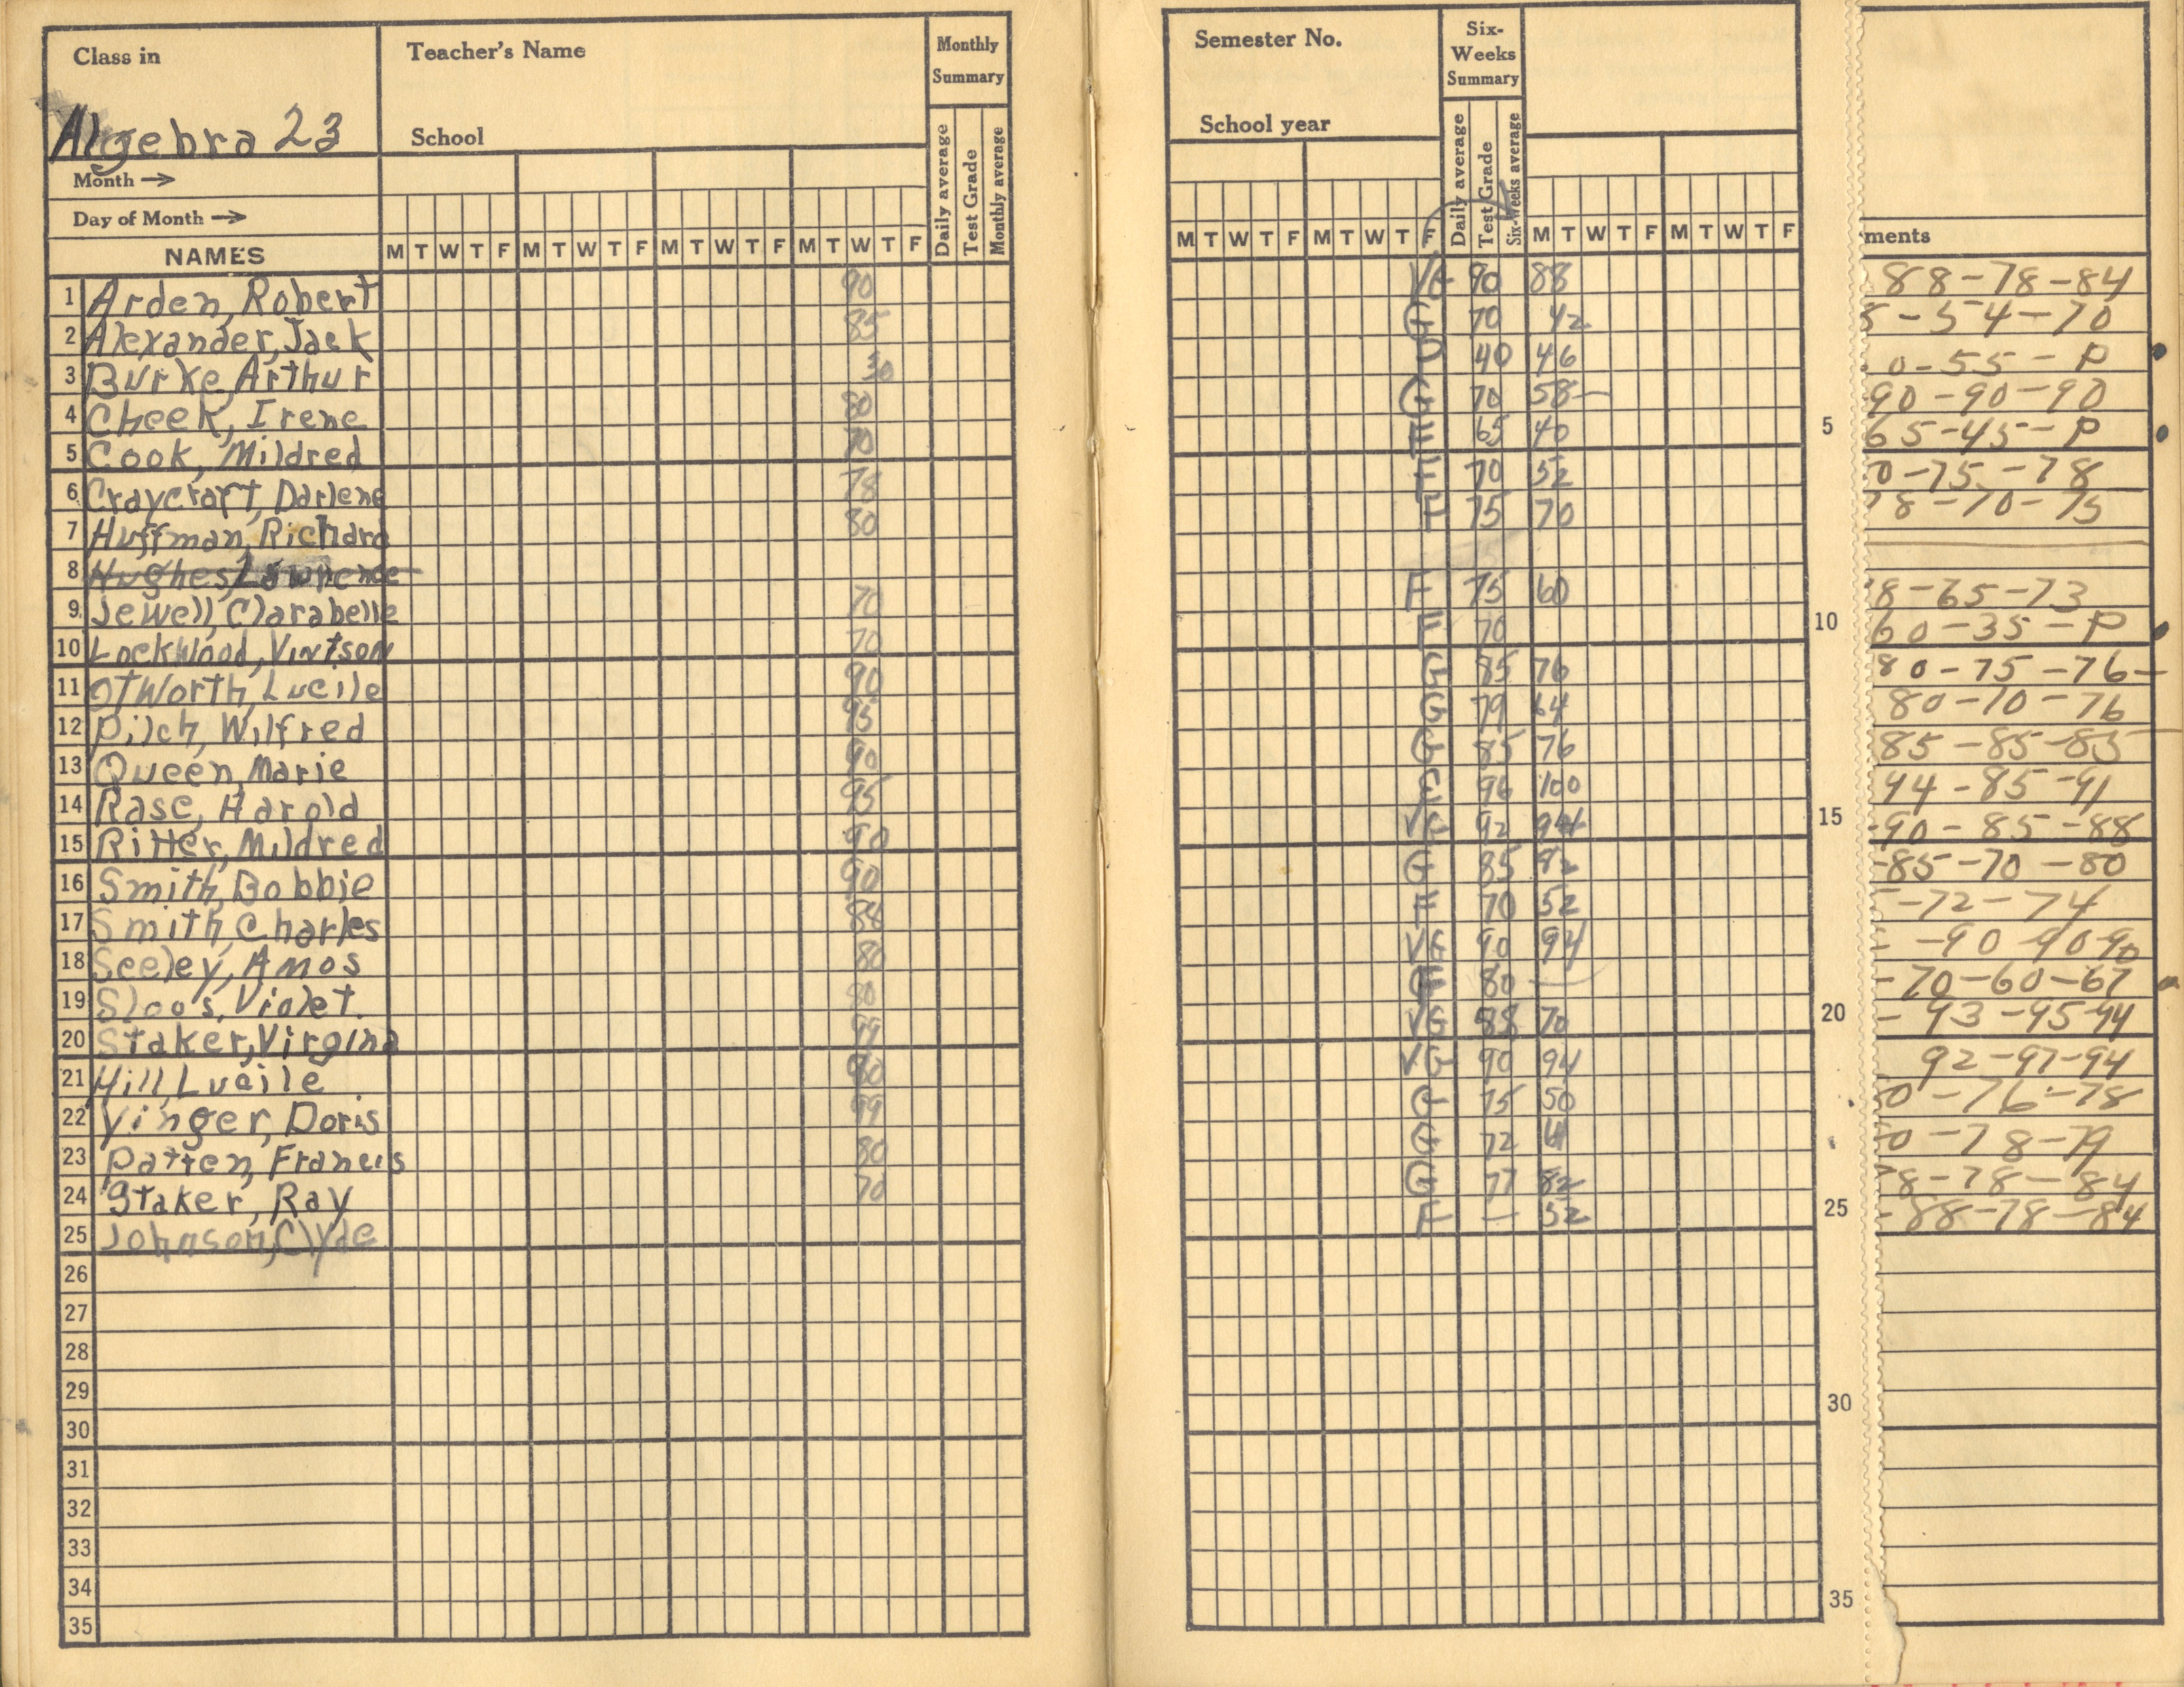 Class in
Algebra 23
Teacher's Name
School
Monthly Summary
Daily average
Test Grade
Monthly average
Month →
Day of Month →
NAMES M T W T F M T W T F M T W T F M T W T F
1 Arden, Robert 90
2 Alexander, Jack 85
3 Burke, Arthur 30
4 Cheek, Irene 80
5 Cook, Mildred 70
6 Craycraft, Darlene 78
7 Huffman, Richard 80
8 Hughes, Lawrence
9 Jewell, Clarabelle 70
10 Lockwood, Vintson 70
11 Otworth, Lucile 90
12 Pilch, Wilfred 95
13 Queen, Marie 90
14 Rase, Harold 95
15 Ritter, Mildred 90
16 Smith, Bobbie 90
17 Smith, Charles 88
18 Seeley, Amos 80
19 Sloos, Violet. 80
20 Staker, Virgina 99
21 Hill, Lucile 80
22 Yinger, Doris 99
23 Patten, Francis 80
24 Staker, Ray 70
25 Johnson, Clyde
26
27
28
29
30
31
32
33
34
35
Semester No.
School year
Six-Weeks Summary
Daily average
Test Grade
Six-Weeks average
M T W T F M T W T F M T W T F M T W T F
VG 90 88
G 70 42
D 40 46
G 70 58
F 65 40
F 70 52
F 75 70
F 75 60
F 70
G 85 76
G 79 64
G 85 76
E 96 100
VG 92 94
G 85 92
F 70 52
VG 90 94
80 —
VG 88 70
VG 90 94
G 75 50
G 72
G 77 82
F — 52
5
10
15
20
25
30
35
ments
88-78-84
5-54-70
0-55-P
90-90-90
65-45-P
0-75-78
78-70-75
8-65-73
60-35-P
80-75-76-
80-70-76
85-85-85
94-85-91
-90-85-88
-85-70-80
-72-74
-90-90-90
-70-60-67
-93-95-94
92-97-94
0-76-78
0-78-79
8-78-84
-88-78-84